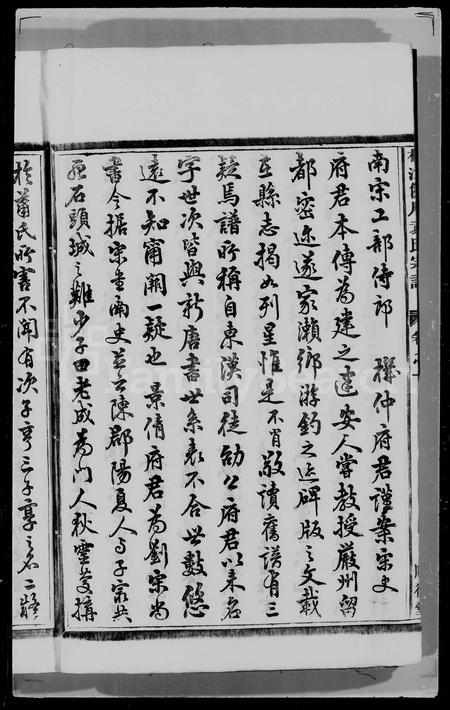 南宋工部侍郎 機仲府君謹案宋史
府君本傳為建之建安人嘗教授嚴州留
都密迩遂家瀨鄉游釣之迹碑版之文載
在縣志揭如列星惟是不肖敬讀舊譜有三
疑焉譜所稱自東漢司徒劭公府君以來名
字世次皆與新唐書世系表不合世數悠
遠不知甯闕一疑也 景倩府君為劉宋尚
書令据宋書南史并公陳郡陽夏人与子宗共
死石頭城之難少子田老成為門人狄靈慶搆
於蕭氏所害不聞有次子亨三子享之名二疑